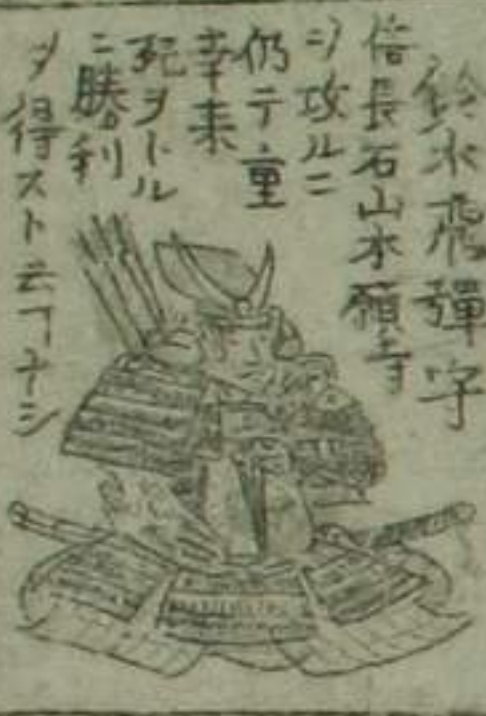 鈴木飛彈守
信長石山本願寺
ヲ攻ルニ
仍テ重
幸来
死ヲトル
ニ勝利
ヲ得スト云フヿナシ